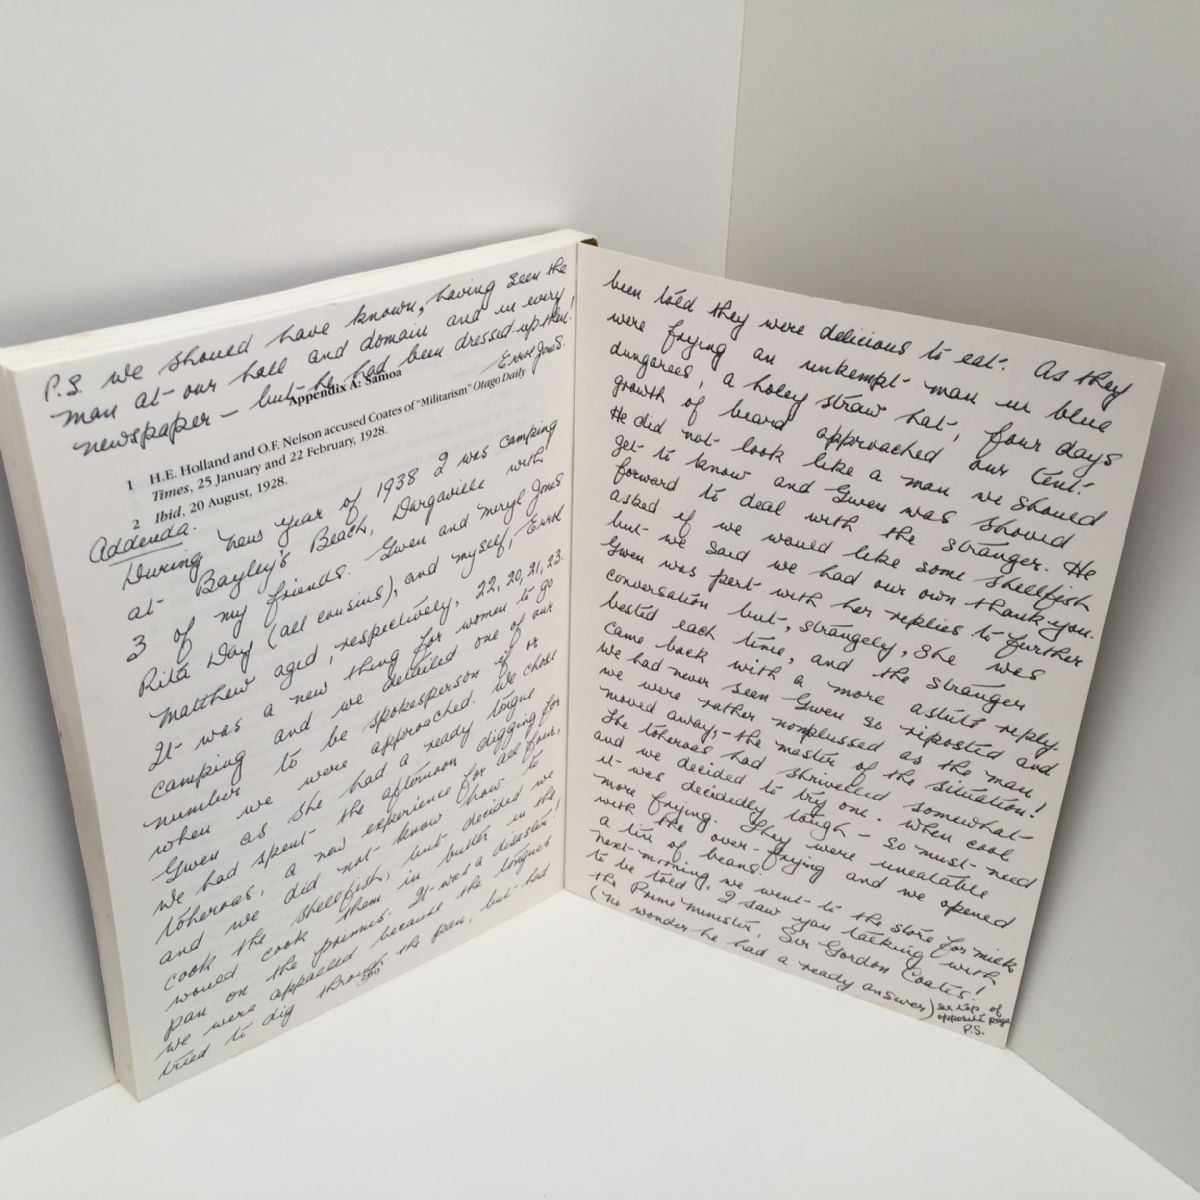 P.S. We should have known, having seen the
man at our hall and domain and in every
newspaper – but he had been dressed-up then!
Errol Jones.
Appendix A: Samoa
1 H.E. Holland and O.F. Nelson accused Coates of "Militarism" Otago Daily
Times, 25 January and 22 February, 1928.
2 Ibid, 20 August, 1928.
Addenda.
During New Year of 1938 I was camping
at Bayley's Beach, Dargaville with
3 of my friends. Gwen and Meryl Jones
Rita Day (all cousins), and myself, Errol
Matthew aged, respectively, 22, 20, 21, 23.
It was a new thing for women to go
camping and we detailed one of our
number to be spokesperson if or
when we were approached. We chose
Gwen as she had a ready tongue
We had spent the afternoon digging for
toheroas, a new experience for all four,
and we did not know how to
cook the shellfish, but decided we
would cook them in butter in the
pan on the primus. It was a disaster!
We were appalled because the tongues
tried to dig through the pan, but had
been told they were delicious to eat. As they
were frying an unkempt man in blue
dungarees, a holey straw hat, four days
growth of beard approached our tent.
He did not look like a man we should
get to know and Gwen was shoved
forward to deal with the stranger. He
asked if we would like some shellfish
but we said we had our own thank-you.
Gwen was pert with her replies to further
conversation but, strangely, she was
bested each time, and the stranger
came back with a more astute reply.
We had never seen Gwen so riposted and
we were rather nonplussed as the man
moved away – the master of the situation!
The toheroas had shrivelled somewhat
and we decided to try one. When cool
it was decidedly tough – so must need
more frying. They were uneatable
with the over-frying and we opened
a tin of beans.
Next morning we went to the store for milk
to be told, I saw you talking with
the Prime Minister, Sir Gordon Coates!
(No wonder he had a ready answer)
see top of
opposite page
P.S.